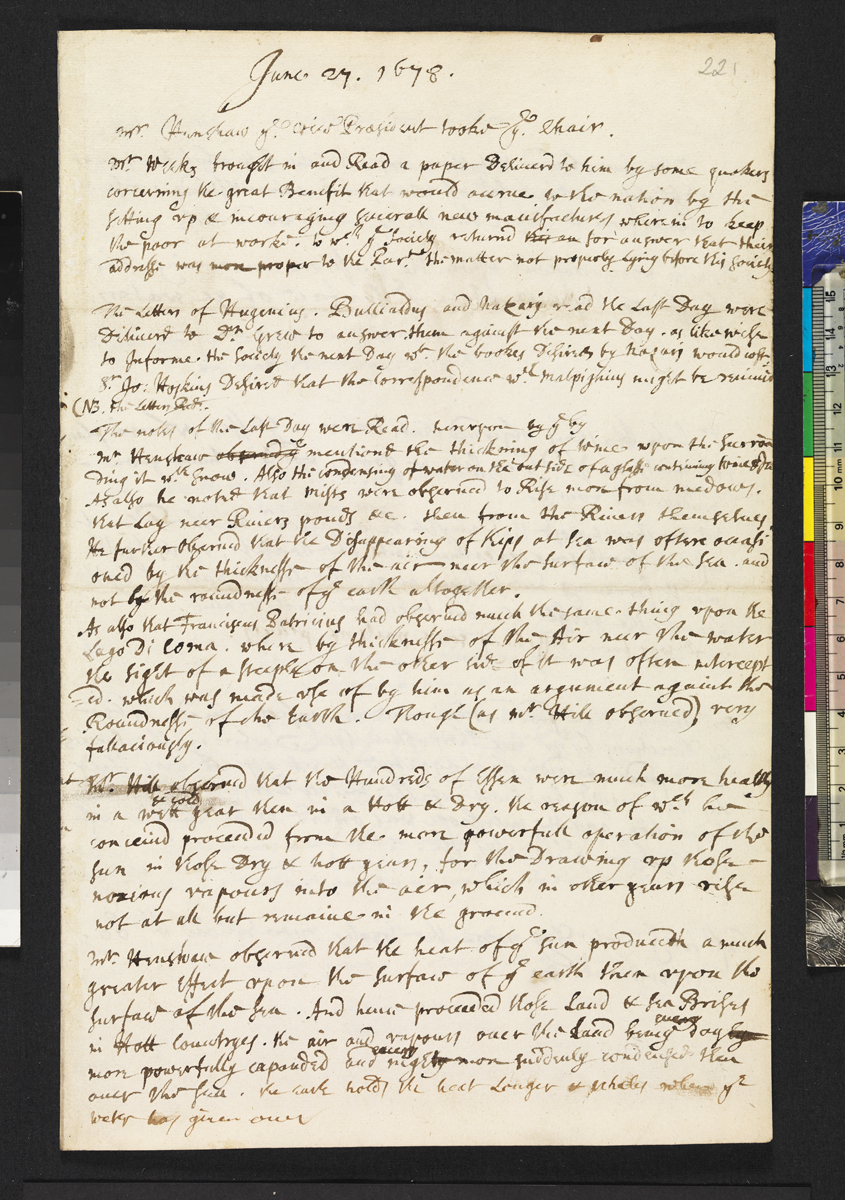 221
June. 27. 1678.
Mr. Henshaw ye. vice President tooke ye Chair.
Mr Weeks brought in and Read a paper Deliverd to him by some quakers
concerning the great Benefit that would accrue to the nation by the
setting up & incouraging severall new manufactures wherein to keep
the poor at worke. to wch ye Society returnd this an for answer that their
addresse was more proper to the Par.t the matter not properly Lying before this society
The Letters of Hugenius. Bullialdus and Nazary read the Last Day were
Deliverd to Dr. Grew to answer them against the next Day. as likewise
to Informe. the Society the next Day wt. the bookes Desired by Nazary would cost.
Sr Jo: Hoskins Desired that the Correspondence wth malpighius might be reniued
(NB. the Letters Red.
The notes of the Last Day were Read. hereupon by ye by
mr Henshaw observd ye mentiond the thickning of wine upon the surroun
ding it wth snow. Also the condensing of water on the out side of a glasse containing
As also he noted that mists were observed to Rise more from medows.
that Lay neer Rivers ponds &c. then from the Rivers themselves.
He further observd that the Disappearing of ships at sea was often ocasi
oned by the thicknesse of the air neer the surface of the sea. and
not by the roundnesse of ye earth altogether.
As also that Franciscus Patricius had observed much the same thing upon the
Lago Di Coma. where by thicknesse of the Air neer the water
the sight of a steeple on the other side of it was often intercept
=ed. which was made use of by him as an argument against the
Roundnesse of the Earth. Though (as mr Hill observed) very
fallaciously.
Mr. Hill observed that the Hundreds of Essex were much more healthy
& cold
in a wett year then in a Hott & Dry. the reason of wch hee
conceivd proceeded from the more powerfull operation of the
sun in those Dry & hott years, for the Drawing up those
noxious vapours into the air, which in other years rise
not at all but remaine in the ground.
Mr. Henshaw observed that the heat of ye sun produceth a much
greater effect upon the surface of ye earth then upon the
surface of the sea. And hence proceeded those Land & sea Brises
in Hott Countryes. the air and vapours over the Land being every day by
more powerfully expanded and every night more suddenly condensed then
over the sea. the earth holds the heat Longer ye
water has given over